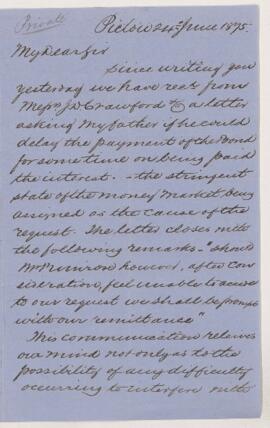 Private
Pictou 24th June 1875.
My Dear Sir
Since writing you
yesterday we have recd. from
Messrs J D Crawford & Co a letter
asking My father if he could
delay the payment of the Bond
for some time on being paid
the interest. - the stringent
state of the money market being
assigned as the cause of the
request. The letter closes with
the following remarks - "Should
Mr Primrose however, after con
sideration, feel unable to accede
to our request we shall be prompt
with our remittance"
This communication relieves
our mind not only as to the
possibility of any difficulty
occurring to interfere with